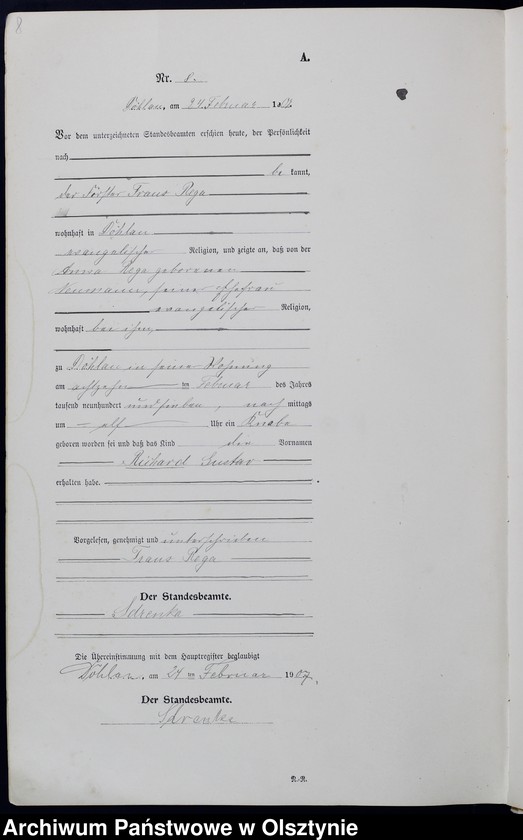 8
A.
Nr. 8.
Döhlau, am 24. Februar 1907.
Vor dem unterzeichneten Standesbeamten erschien heute, der Persönlichkeit
nach
be kannt,
der Förster Franz Rega
wohnhaft in Döhlau
evangelischer Religion, und zeigte an, daß von der
Anna Rega geborenen
Neumann, seiner Ehefrau
evangelischer Religion,
wohnhaft bei ihm,
zu Döhlau in seiner Wohnung
am achtzehn ten Februar des Jahres
tausend neunhundert und sieben, nach mittags
um elf Uhr ein Knabe
geboren worden sei und daß das Kind den Vornamen
Richard Gustav
erhalten habe.
Vorgelesen, genehmigt und unterschrieben
Franz Rega
Der Standesbeamte.
Die Übereinstimmung mit dem Hauptregister beglaubigt
Döhlau, am 24 ten Februar 1907.
Der Standesbeamte.
Archiwum Państwowe w Olsztynie